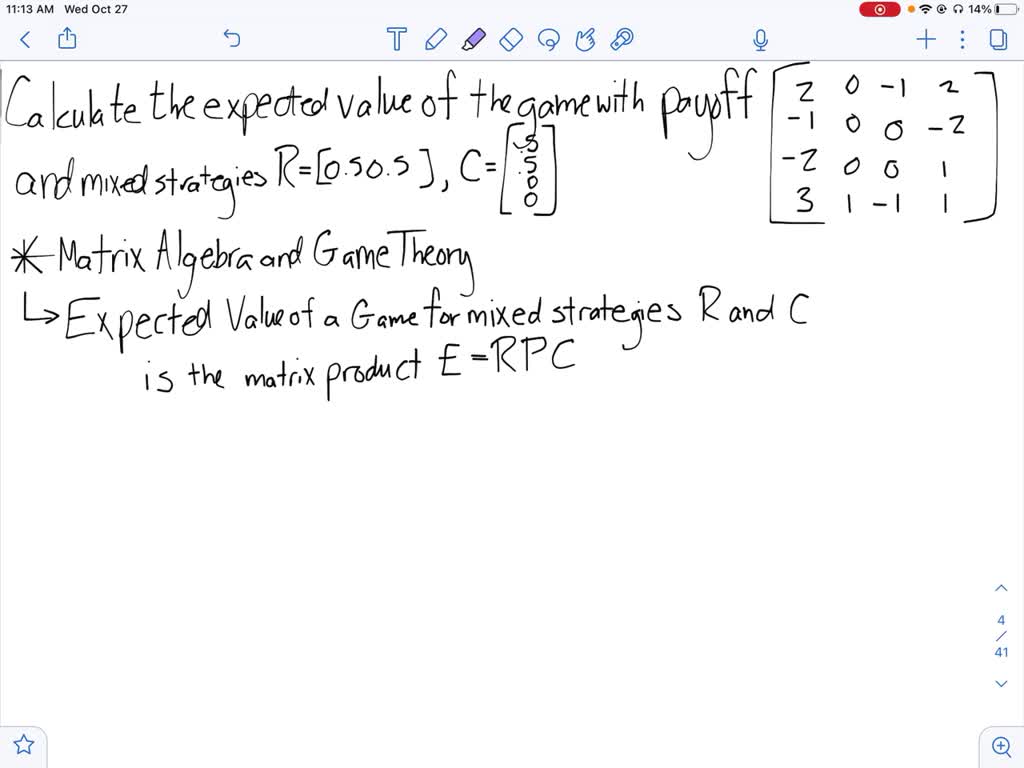 11:13 AM Wed Oct 27 14%
Calculate the expected value of the game with payoff [2 0 -1 2
-1 0 0 -2
-2 0 0 1
3 1 -1 1]
and mixed strategies R=[0.50.5], C=[.5
.5
0
0]
* Matrix Algebra and Game Theory
↳ Expected Value of a Game for mixed strategies R and C
is the matrix product E=RPC
4
/
41